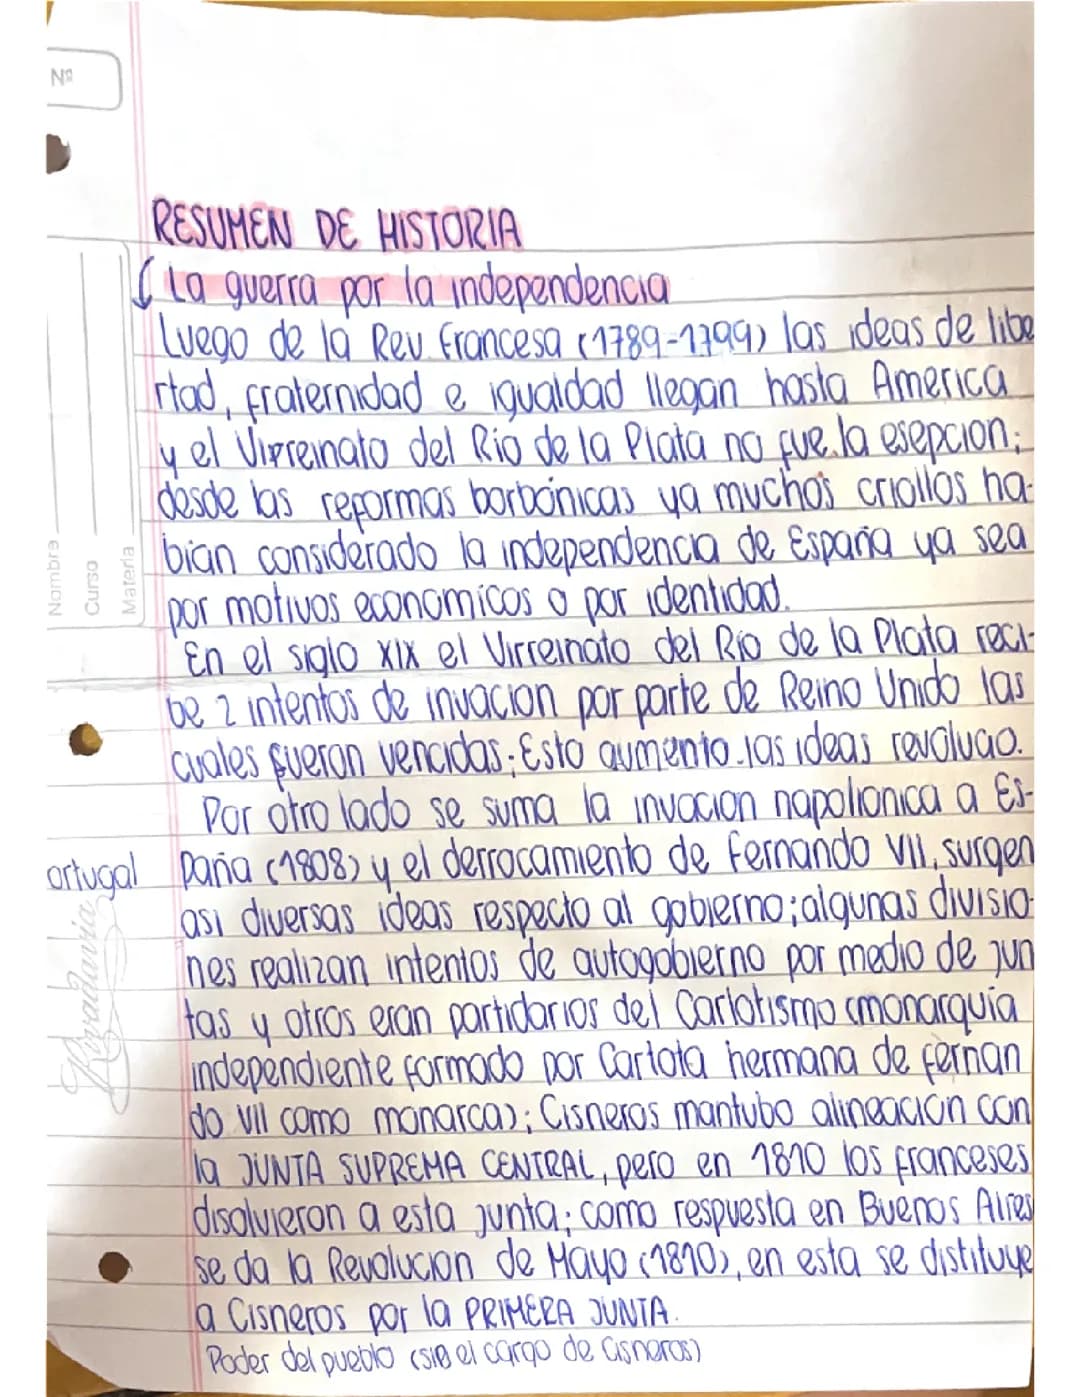 Nº
RESUMEN DE HISTORIA
La guerra por la independencia
Luego de la Rev. Francesa (1789-1799) las ideas de libe
rtad, fraternidad e igualdad llegan hasta America
y el Virreinato del Río de la Plata no fue la esepcion;
desde las reformas borbónicas ya muchos criollos ha-
bian considerado la independencia de España ya sea
por motivos economicos o por identidad.
En el siglo XIX el Virreinato del Río de la Plata reci-
be 2 intentos de invacion por parte de Reino Unido las
cuales fueron vencidas; Esto aumento las ideas revolucio.
Por otro lado se suma la invacion napolionica a Es-
paña (1808) y el derrocamiento de Fernando VII, surgen
asi diversas ideas respecto al gobierno; algunas divisio-
nes realizan intentos de autogobierno por medio de jun
tas y otros eran partidarios del Carlotismo (monarquia
independiente formado por Carlota hermana de fernan
do VII como monarca); Cisneros mantubo alineacion con
la JUNTA SUPREMA CENTRAL, pero en 1810 los franceses
disolvieron a esta junta; como respuesta en Buenos Aires
se da la Revolucion de Mayo (1810), en esta se distituye
a Cisneros por la PRIMERA JUNTA.
Poder del pueblo (sin el cargo de Cisneros)
ortugal
Nombre
Curso
Materia
Rivadavia